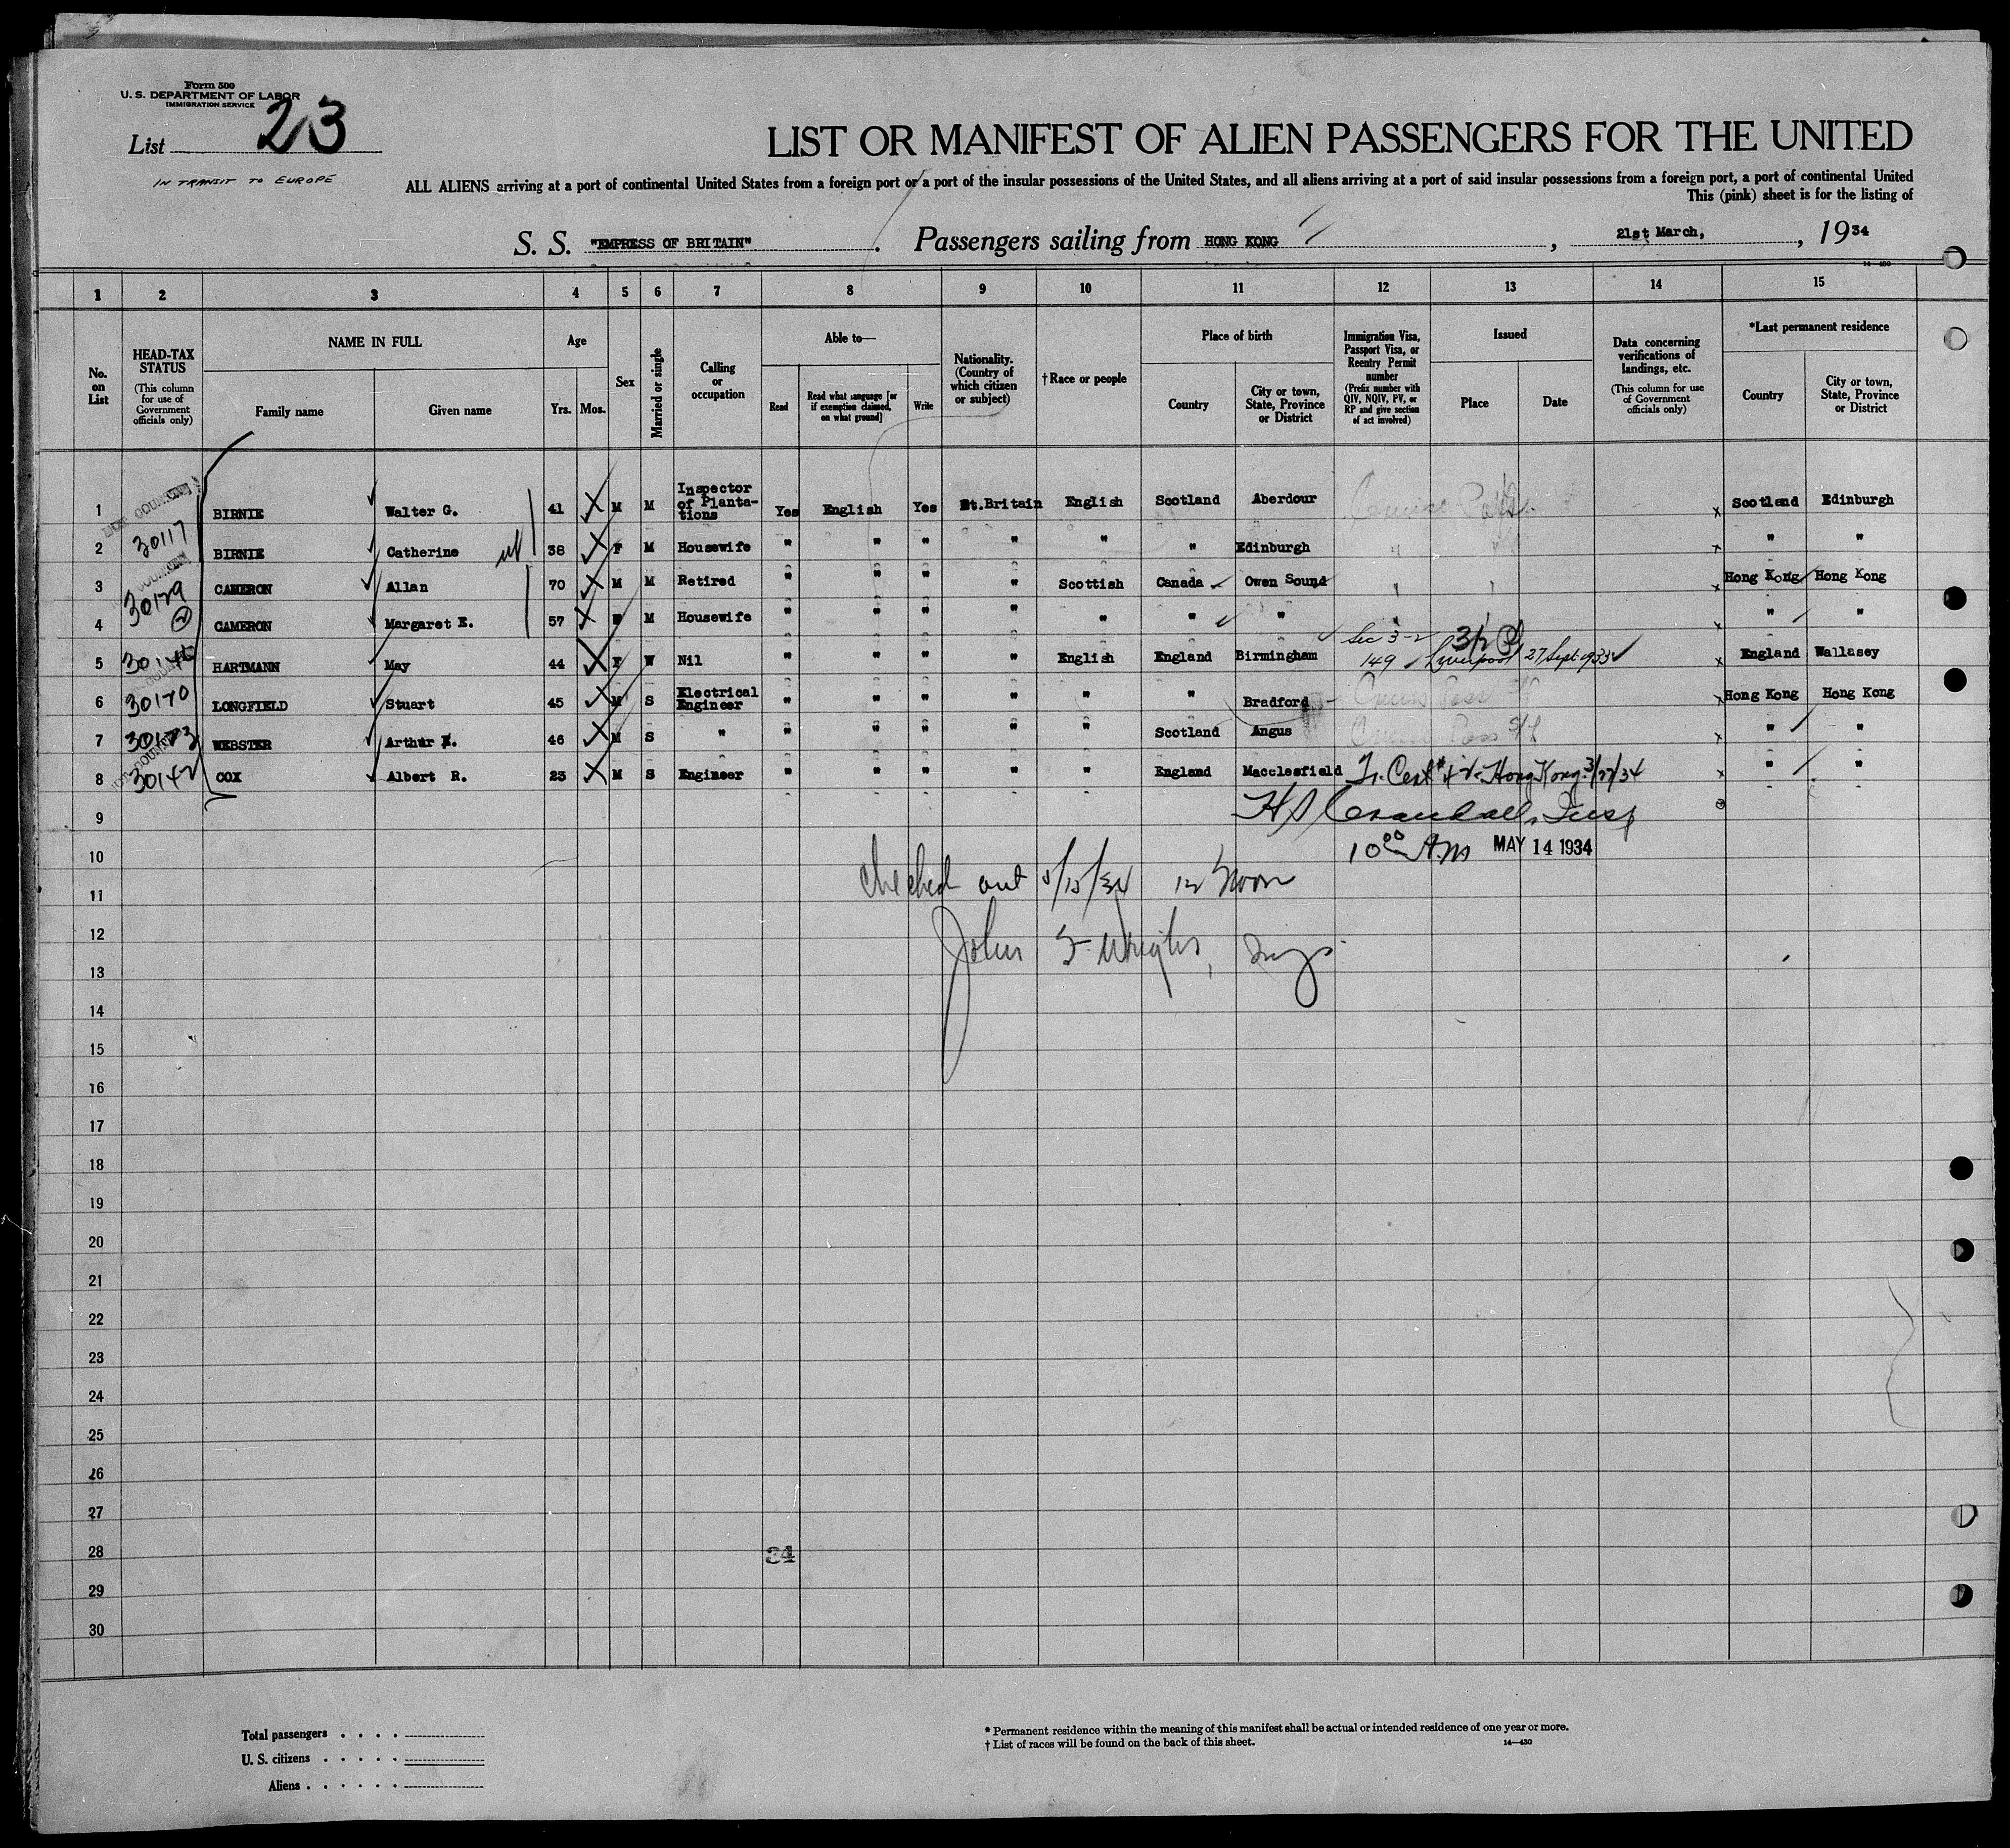 Form 500
U. S. DEPARTMENT OF LABOR
IMMIGRATION SERVICE
List 23
IN TRANSIT TO EUROPE
LIST OR MANIFEST OF ALIEN PASSENGERS FOR THE UNITED
ALL ALIENS arriving at a port of continental United States from a foreign port or a port of the insular possessions of the United States, and all aliens arriving at a port of said insular possessions from a foreign port, a port of continental United
This (pink) sheet is for the listing of
S. S. "EMPRESS OF BRITAIN" . Passengers sailing from HONG KONG , 21st March, , 1934
14-430
1 2 3 4 5 6 7 8 9 10 11 12 13 14 15
No. on List
HEAD-TAX STATUS (This column for use of Government officials only)
NAME IN FULL
Family name
Given name
Age
Yrs. Mos.
Sex
Married or single
Calling or occupation
Able to—
Read
Read what language [or if exemption claimed, on what ground]
Write
Nationality. (Country of which citizen or subject)
†Race or people
Place of birth
Country
City or town, State, Province or District
Immigration Visa, Passport Visa, or Reentry Permit number (Prefix number with QIV, NQIV, PV, or RP and give section of act involved)
Issued
Place
Date
Data concerning verifications of landings, etc. (This column for use of Government officials only)
*Last permanent residence
Country
City or town, State, Province or District
1 BIRNIE Walter G. 41 M M Inspector of Planta- tions Yes English Yes Gt.Britain English Scotland Aberdour x Scotland Edinburgh
2 30117 BIRNIE Catherine 38 F M Housewife " " " " " " Edinburgh " x " "
3 30179 CAMERON Allan 70 M M Retired " " " " Scottish Canada Owen Sound x Hong Kong Hong Kong
4 2 CAMERON Margaret E. 57 F M Housewife " " " " " " " x " "
Sec 3-2 3/2
5 HARTMANN May 44 F W Nil " " " " English England Birmingham 149 Liverpool 27 Sept 1933 x England Wallasey
6 30170 LONGFIELD Stuart 45 M S Electrical Engineer " " " " " " Bradford x Hong Kong Hong Kong
7 30173 WEBSTER Arthur 46 M S " " " " " " Scotland Angus x " "
8 30142 COX Albert R. 23 M S Engineer " " " " " England Macclesfield Tr. Cert # 42 Hong Kong 3/27/34 x " "
9 H S Crandall, Insp
10 10 00 A.M MAY 14 1934
11 checked out 5/15/34 12 Noon
12 John F. Wright, Insp
13
14
15
16
17
18
19
20
21
22
23
24
25
26
27
28 34
29
30
Total passengers . . . .
U. S. citizens . . . . .
Aliens . . . . . .
* Permanent residence within the meaning of this manifest shall be actual or intended residence of one year or more.
† List of races will be found on the back of this sheet.
14-430